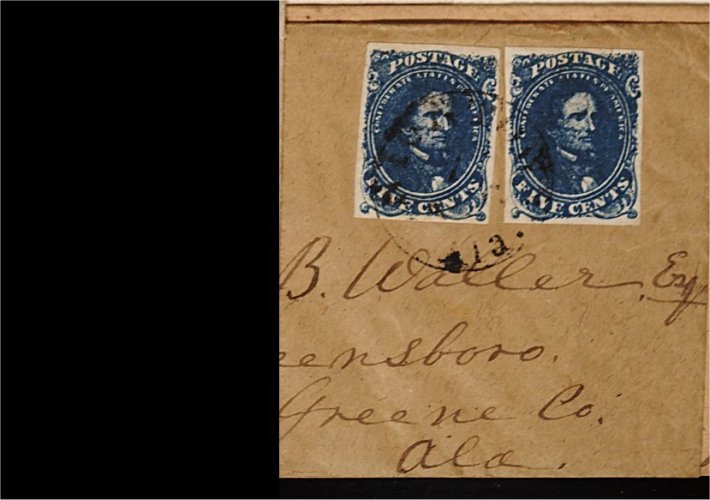 POSTAGE
CONFEDERATE STATES OF AMERICA
FIVE CENTS
POSTAGE
CONFEDERATE STATES OF AMERICA
FIVE CENTS
B. Waller. Esq
eensboro.
Greene Co.
Ala.